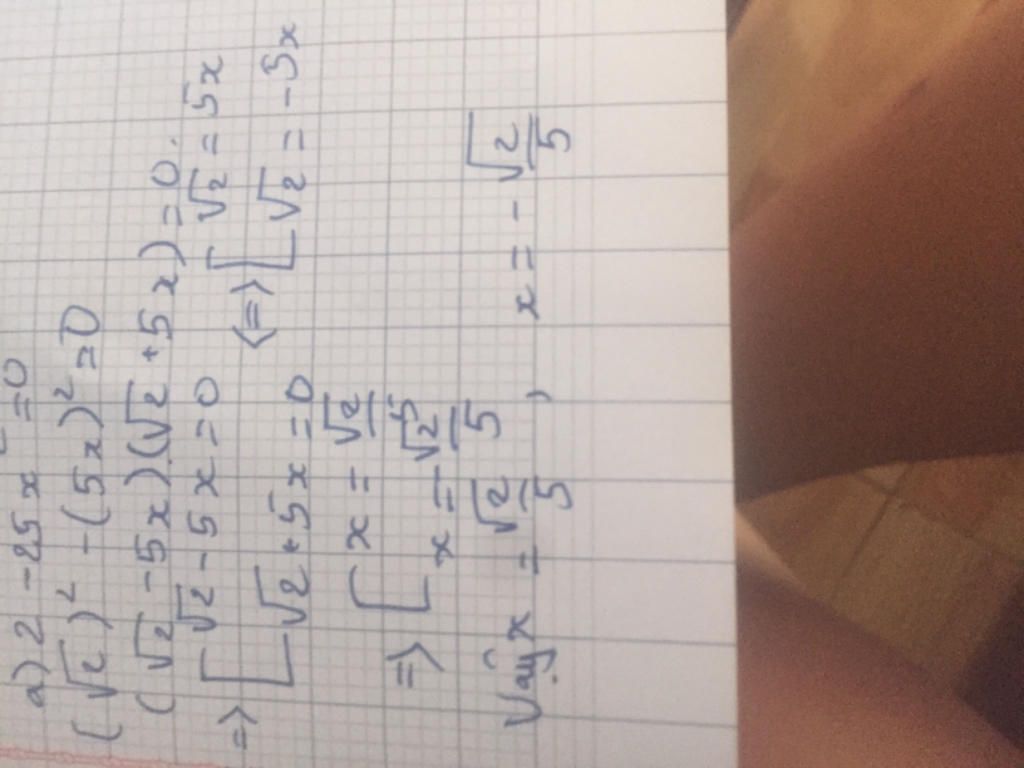 a) 2 - 25x² = 0
(√2)² - (5x)² = 0
(√2 - 5x)(√2 + 5x) = 0.
=> [ √2 - 5x = 0 <=> [ √2 = 5x
√2 + 5x = 0 √2 = -5x
=> [ x = √2/5
x = -√2/5
Vậy x = √2/5 , x = -√2/5